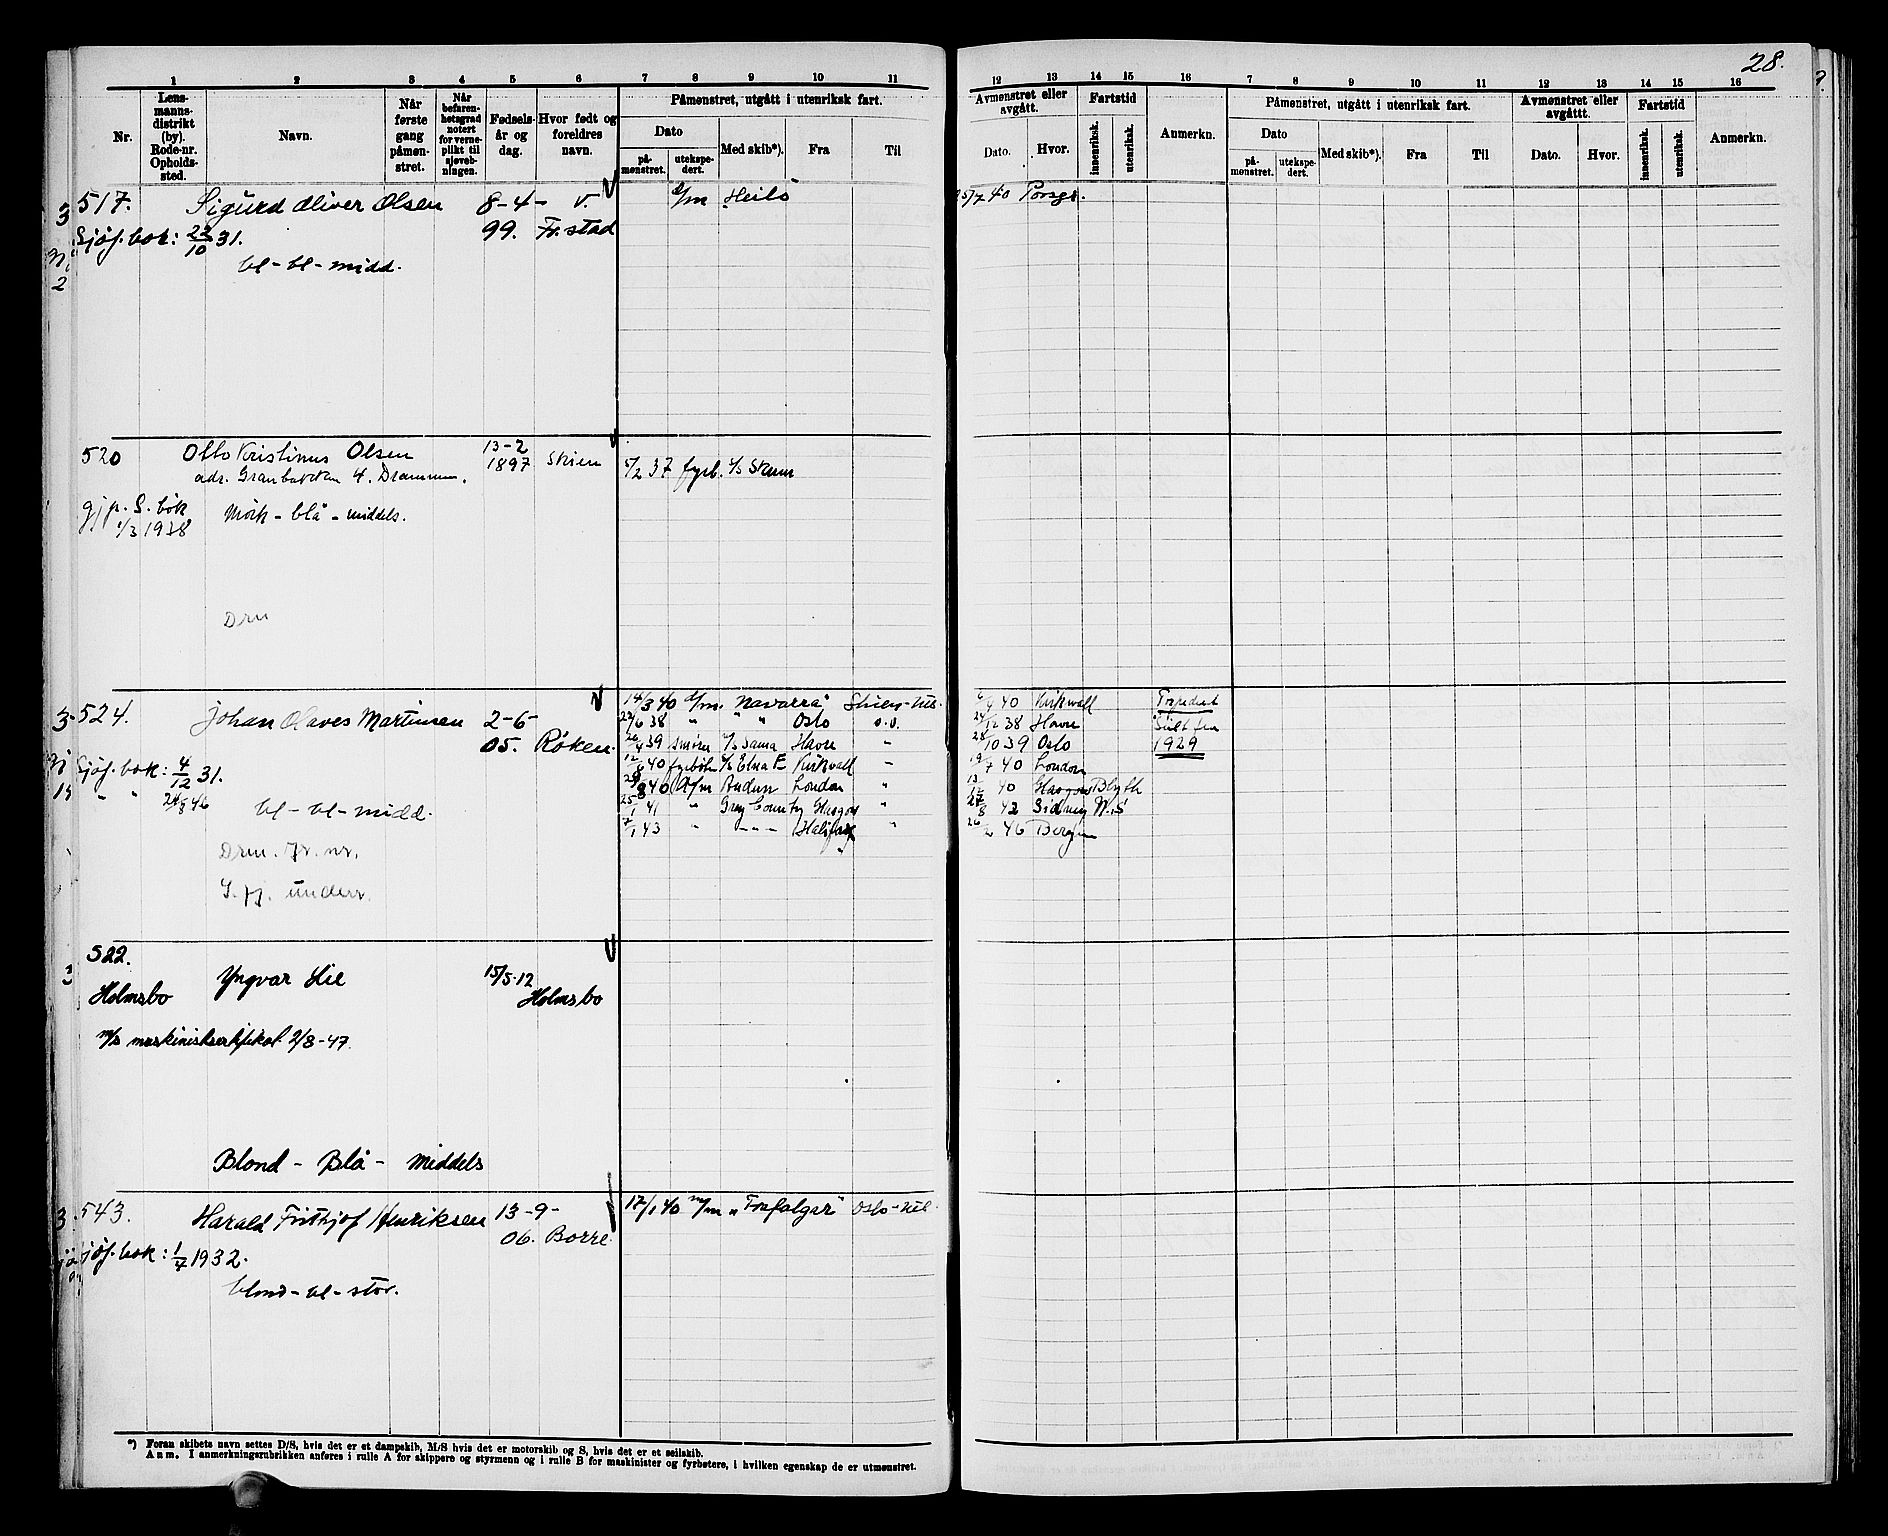 28.
1 2 3 4 5 6 7 8 9 10 11
12 13 14 15 16 7 8 9 10 11 12 13 14 15 16
Nr.
Lens-
manns-
distrikt
(by).
Rode-nr.
Opholds-
sted.
Navn.
Når
første
gang
påmøn-
stret.
Når
befaren-
hetsgrad
notert
for verne-
plikt til
sjøveb-
ningen.
Fødsels-
år og
dag.
Hvor født og
foreldres
navn.
Påmønstret, utgått i utenriksk fart.
Dato
på-
mønstret.
utekspe-
dert.
Med skib*).
Fra
Til
Avmønstret eller
avgått.
Dato.
Hvor.
Fartstid
innenriksk.
utenriksk.
Anmerkn.
Påmønstret, utgått i utenriksk fart.
Dato
på-
mønstret.
utekspe-
dert.
Med skib*).
Fra
Til
Avmønstret eller
avgåttt.
Dato.
Hvor.
Fartstid
innenriksk.
utenriksk.
Anmerkn.
517. Sigurd Oliver Olsen 8-4- v. d/m Heilo 5/7 40 Porsgr.
Sjøf.bok: 22/10 31. 99. Fr.stad
bl-bl-midd.
520 Otto Kristinus Olsen 13-2
1897 Skien 5/2 37 fyrb. t/s Skum
adr. Granbakken 4. Drammen.
gjp. S. bok
1/3 1938
Mörk - blå - middels.
Drm
524. Johan Olaves Martinsen 2-6- 14/3 40 d/m. "Navarra" Skien-utl. 6/4 40 Kirkwall Torpedert
05. Røken. 29/6 38 " " " Oslo o.v. 24/12 38 Havre Siilt fra
26/4 39 smører t/s Sama Havre " 28/10 39 Oslo 1929
Sjøf.bok: 4/12 31. 12/6 40 fyrbøter t/s Elna E Kirkwall " 19/7 40 London
" " 24/8 46 29/8 40 d/m Anduen London " 13/12 40 Glasgow Blyth
bl-bl-midd. 25/1 41 " Grey County Glasgow " 27/8 42 Sidney N.S
7/1 43 " - - - Halifax " 26/2 46 Bergen
Drm. Jr. nr.
S. fj. underr.
522.
Holmsbo Yngvar Lie 15/5-12
Holmsbo
m/s maskinistsertifikat 2/8-47
Blond - Blå - middels
543. Harald Frithjof Henriksen 13-9- 17/1 40 m/m "Trafalgar" Oslo-utl.
06. Borre.
Sjøf.bok: 1/7 1932.
blond-bl-stor.
*) Foran skibets navn settes D/S, hvis det er et dampskib, M/S hvis det er motorskib og S, hvis det er et seilskib.
Anm. I anmerkningsrubrikken anføres i rulle A for skippere og styrmenn og i rulle B for maskinister og fyrbøtere, i hvilken egenskap de er utmønstret.